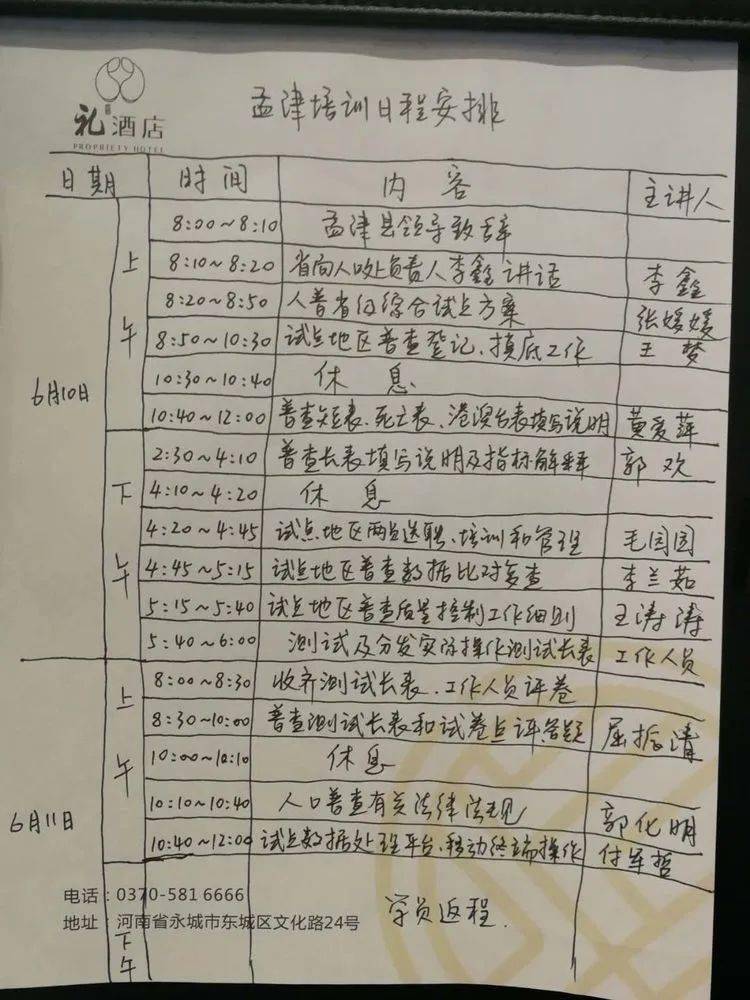 礼酒店
PROPRIETY HOTEL
孟津培训日程安排
日期 时间 内容 主讲人
6月10日
上午
8:00~8:10 孟津县领导致辞
8:10~8:20 省间人口处负责人李鑫讲话 李鑫
8:20~8:50 人普省级综合试点方案 张媛媛
8:50~10:30 试点地区普查登记、摸底工作 王梦
10:30~10:40 休息
10:40~12:00 普查短表、死亡表、港澳台表填写说明 黄爱萍
下午
2:30~4:10 普查长表填写说明及指标解释 郭欢
4:10~4:20 休息
4:20~4:45 试点地区两员选聘、培训和管理 毛园园
4:45~5:15 试点地区普查数据比对复查 李兰茹
5:15~5:40 试点地区普查质量控制工作细则 王涛涛
5:40~6:00 测试及分发实际操作测试长表 工作人员
6月11日
上午
8:00~8:30 收齐测试长表、工作人员评卷
8:30~10:00 普查测试长表和试卷点评答疑 屈振清
10:00~10:10 休息
10:10~10:40 人口普查有关法律法规 郭化明
10:40~12:00 试点数据处理平台、移动终端操作 付军哲
下午
学员返程.
电话：0370-581 6666
地址：河南省永城市东城区文化路24号